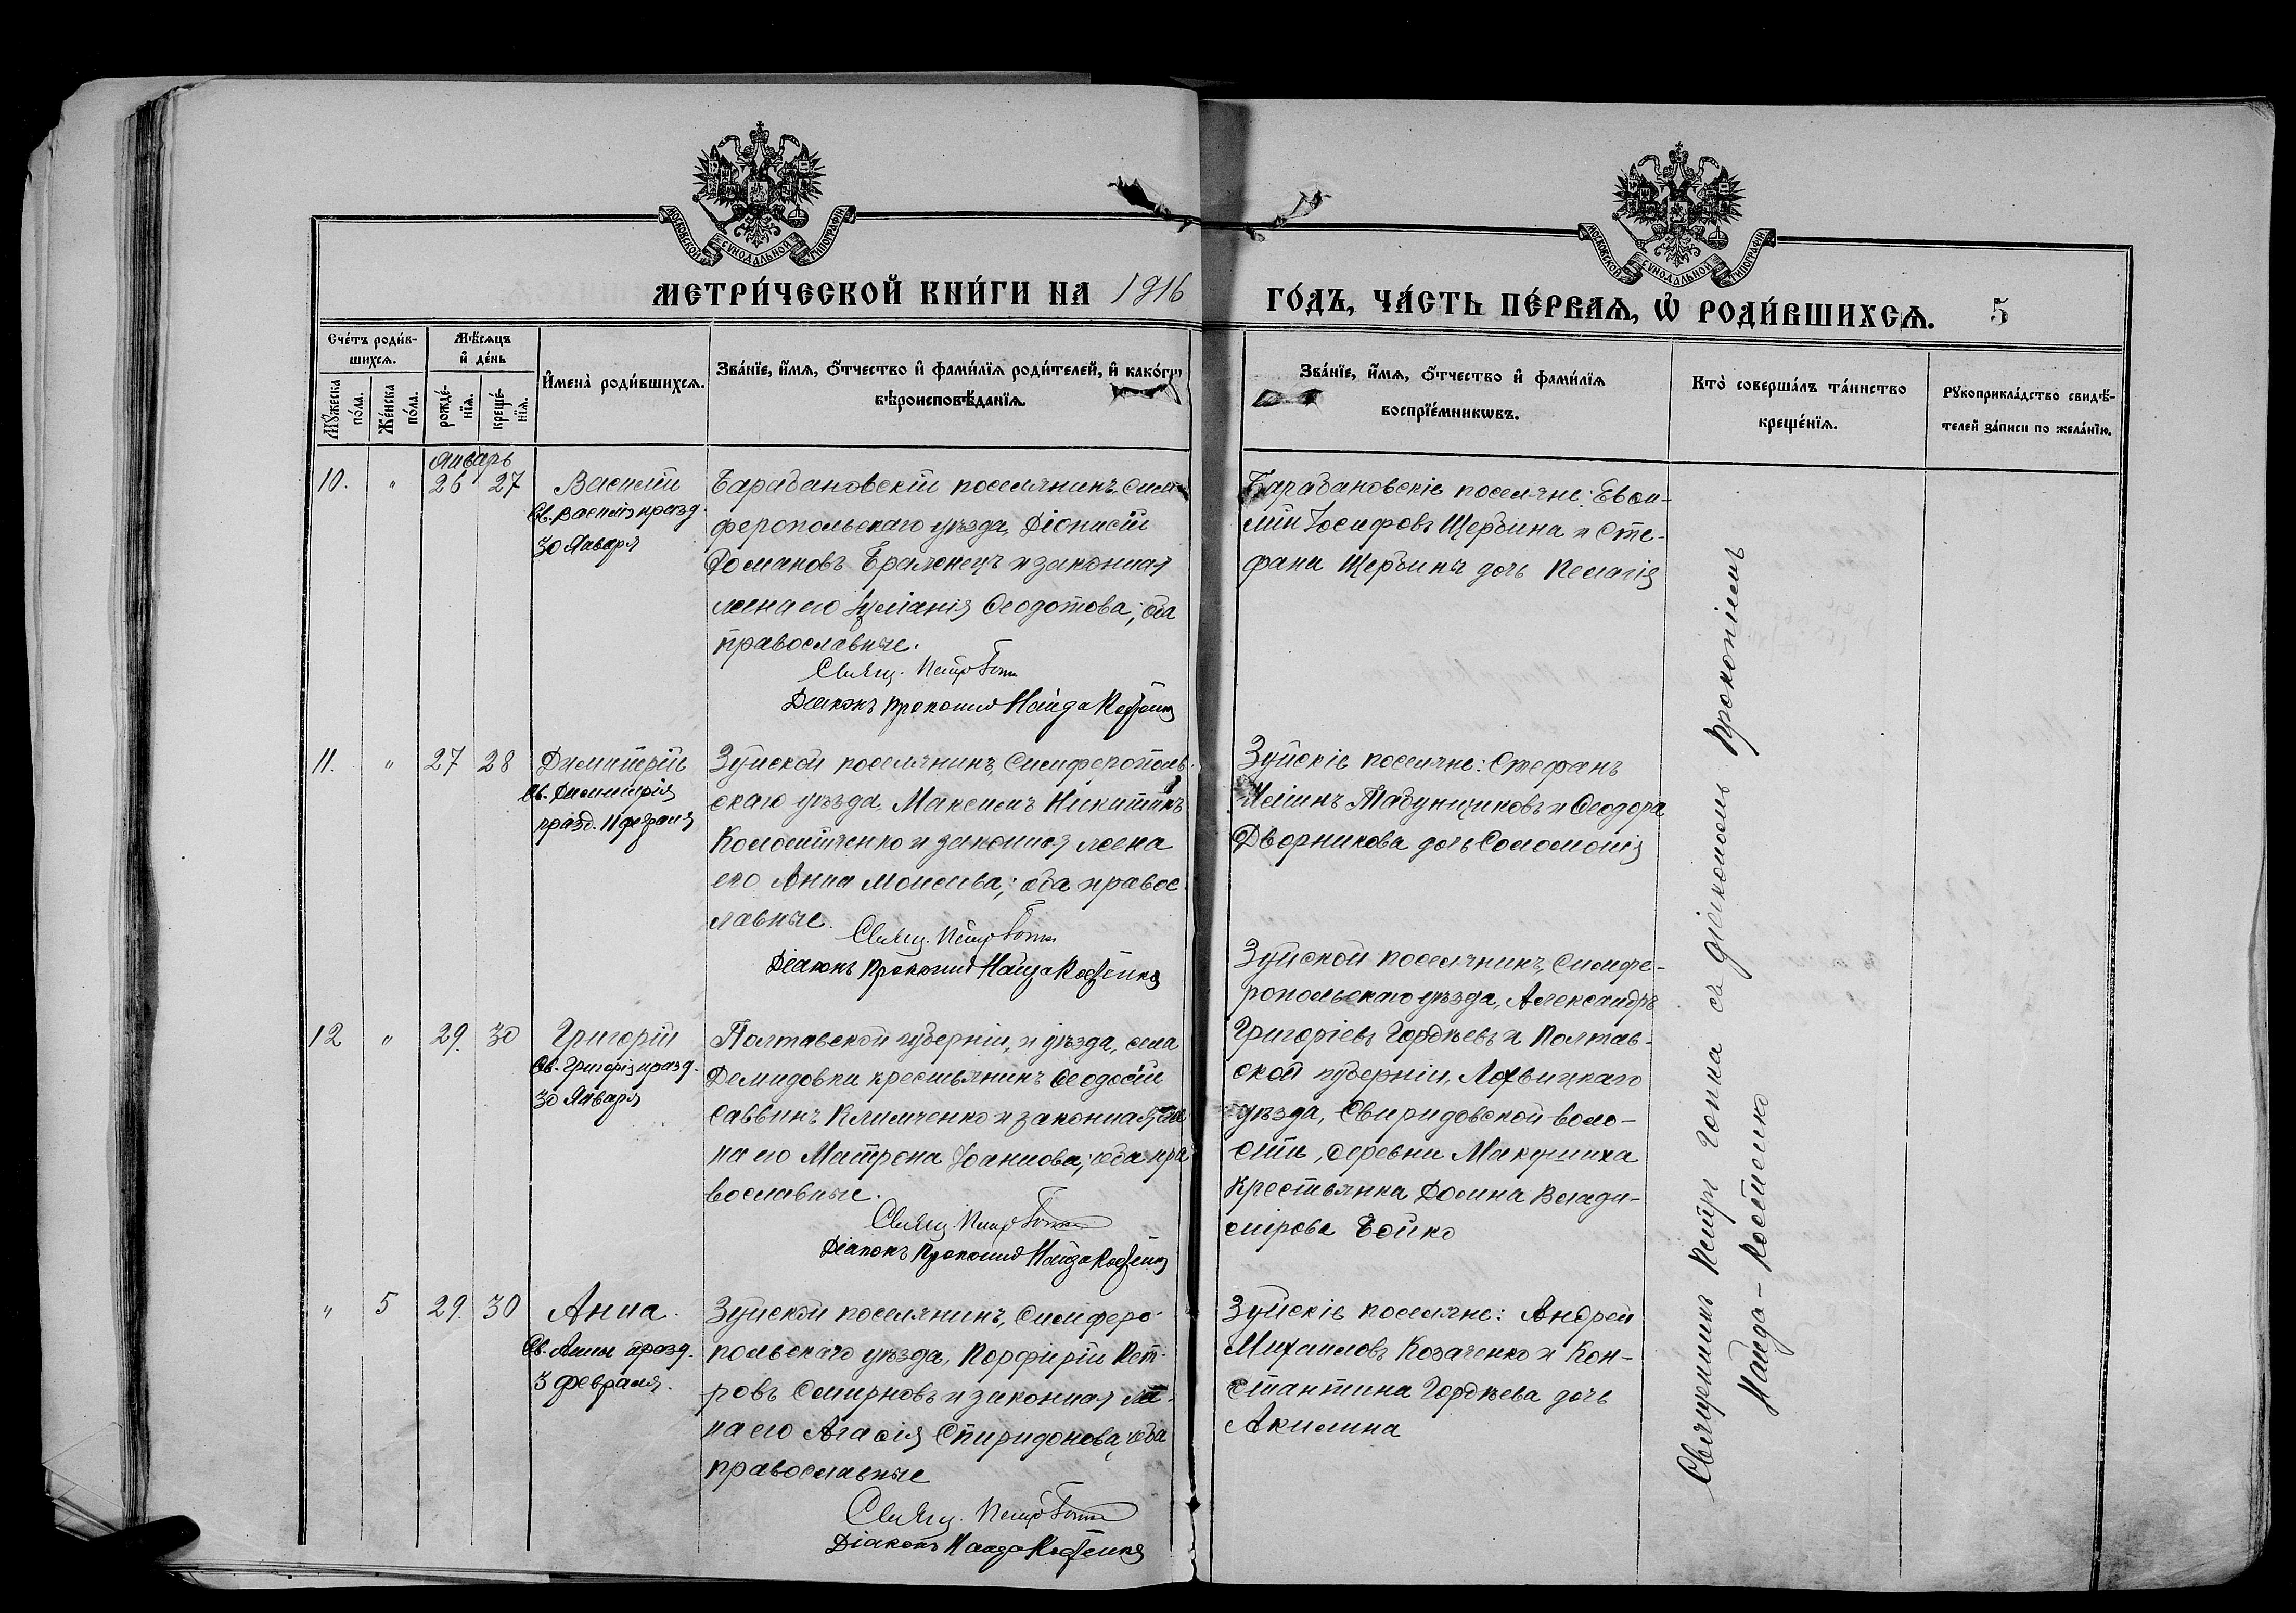 МОСКОВСКОЙ СѴНОДАЛЬНОЙ ТИПОГРАФІИ
МОСКОВСКОЙ СѴНОДАЛЬНОЙ ТИПОГРАФІИ
МЕТРИ́ЧЕСКОЙ КНИ́ГИ НА 1916 ГО́ДЪ, ЧА́СТЬ ПЕ́РВАѦ, Ѡ РОДИ́ВШИХСѦ. 5
Сче́тъ роди́в-
шихсѧ.
Мꙋжеска
по́ла.
Же́нска
по́ла.
Мѣ́сѧцъ
и де́нь
рожде́-
нїѧ.
креще́-
нїѧ.
И҆мена̀ роди́вшихсѧ.
Зва́нїе, и҆́мѧ, ѻ҆́тчество и҆ фами́лїѧ роди́телей, и҆ како́гѡ
вѣроисповѣ́данїѧ.
Зва́нїе, и҆́мѧ, ѻ҆́тчество и҆ фами́лїѧ
воспрїе́мникѡвъ.
Кто̀ соверша́лъ та́инство
креще́нїѧ.
Рꙋкоприкла́дство свидѣ́-
телей за́писи по жела́нїю.
Январь
10. " 26 27
Василій
Св. Василія празд.
30 Января
Барабановскій поселянинъ, Сим-
феропольскаго уѣзда, Діонисій
Романовъ Браженецъ и законная
жена его Іуліанія Ѳеодотова; оба
православные.
Свящ. Петръ Гоппа
Діаконъ Прокопій Найда Костенко
Барабановскіе поселяне: Евѳи-
мій Іосифовъ Щербина и Сте-
фана Щербины дочь Пелагія
11. " 27 28
Димитрій
Св. Димитрія
празд. 11 февраля
Зуйской поселянинъ, Симферополь-
скаго уѣзда Максимъ Никитинъ
Коломійченко и законная жена
его Анна Моисеева; оба правос-
лавные.
Свящ. Петръ Гоппа
Діаконъ Прокопій Найда Костенко
Зуйскіе поселяне: Стефанъ
Иліинъ Табунщиковъ и Ѳеодора
Дворникова дочь Соломонія
12 " 29. 30
Григорій
Св. Григорія празд.
30 Января
Полтавской губерніи, и уѣзда, села
Демидовки крестьянинъ Ѳеодосій
Саввинъ Климченко и законная же-
на его Матрона Іоаннова; оба пра-
вославные.
Свящ. Петръ Гоппа
Діаконъ Прокопій Найда Костенко
Зуйской поселянинъ, Симфе-
ропольскаго уѣзда, Александръ
Григоріевъ Гордѣевъ и Полтав-
ской губерніи, Лохвицкаго
уѣзда, Свиридовской воло-
сти, деревни Макушиха
крестьянка Домна Влади-
мірова Бойко
" 5 29. 30
Анна.
Св. Анны празд.
3 февраля.
Зуйской поселянинъ, Симферо-
польскаго уѣзда, Порфирій Пет-
ровъ Смирновъ и законная же-
на его Агафія Спиридонова, оба
православные
Свящ. Петръ Гоппа
Діаконъ Найда Костенко
Зуйскіе поселяне: Андрей
Михаиловъ Козаченко и Кон-
стантина Гордѣева дочь
Акилина
Священникъ Петръ Гоппа съ діакономъ Прокопіемъ
Найда-Костенко